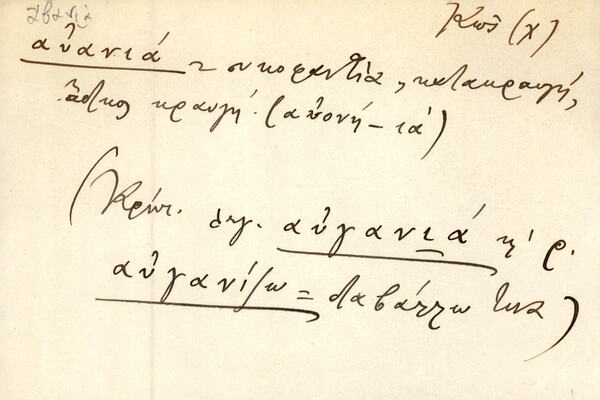 αβανιά
Κῶς (χ)
αὐανιά = συκοφαντία, κατακραυγή,
ἄδικος κραυγή. (αὐονή – ιά)
(Κρήτ. λέγ. αὐγανιά κ' ρ.
αὐγανίζω = διαβάλλω τινα)